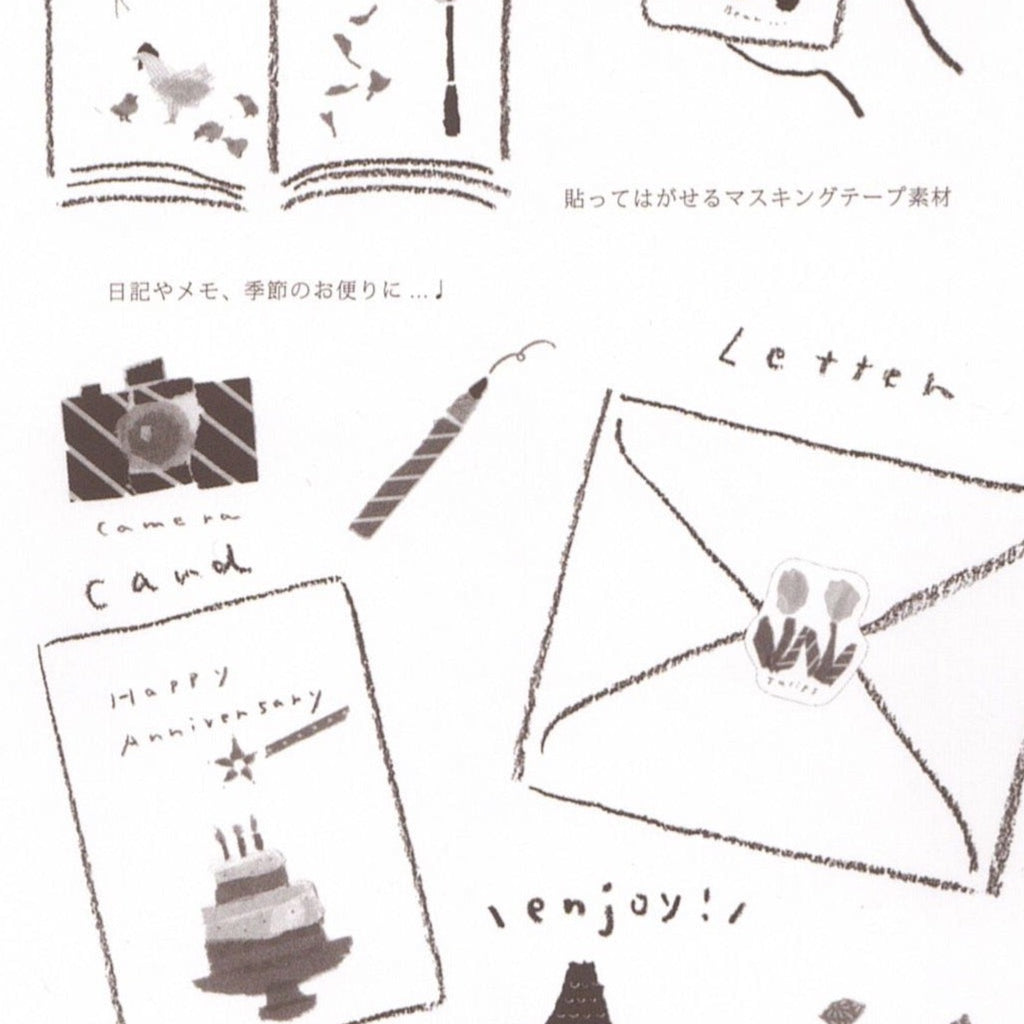 Bean...
貼ってはがせるマスキングテープ素材
日記やメモ、季節のお便りに …♩
Letter
camera
card
Happy
Anniversary
Tulips
\enjoy!/